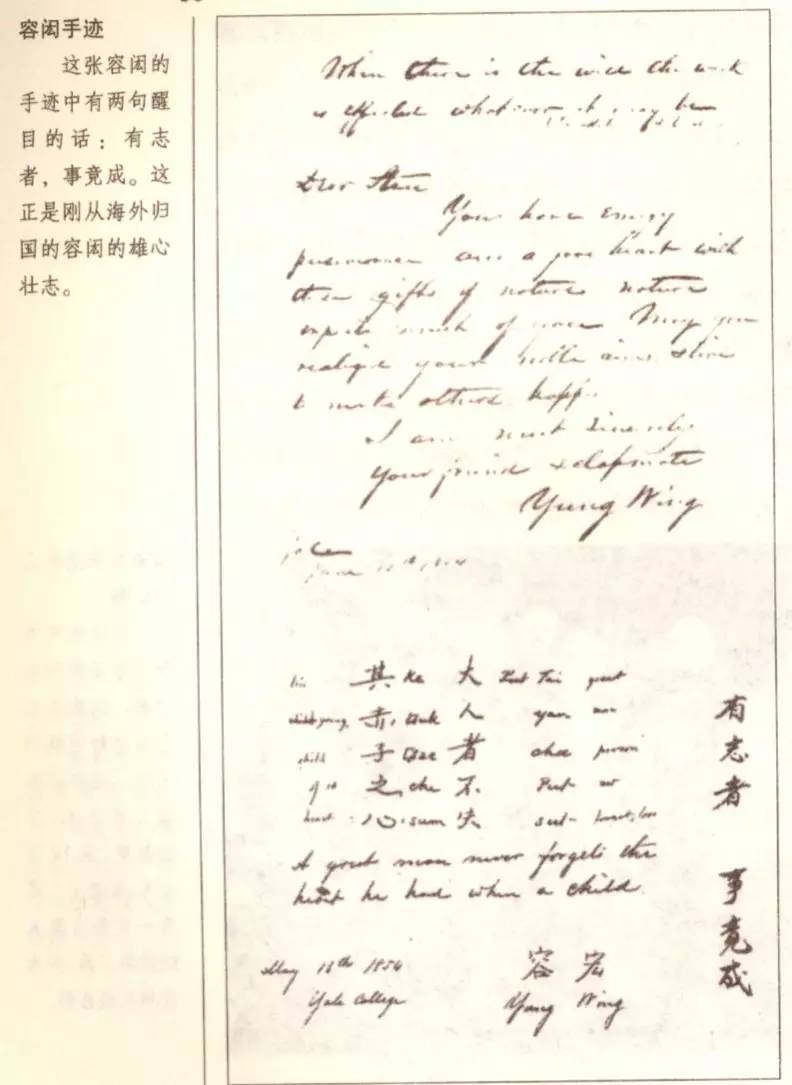 容闳手迹
这张容闳的
手迹中有两句醒
目的话：有志
者，事竟成。这
正是刚从海外归
国的容闳的雄心
壮志。
When there is the will the work
is effected whatever it may be
Dear
You have energy
perseverance and a good heart with
these gifts of nature nature
expects much of you May you
realize your noble aims & live
to make others happy.
I am most sincerely
Your friend & classmate
Yung Wing
June
其 Ke 大 Tai great
赤 人 yan man
child 子 者 chea person
of 之 che 不 Put
heart 心 sum 失 sut
A great man never forgets the
heart he had when a child.
May 16th 1854 容宏
Yale College Yung Wing
有志者 事竟成